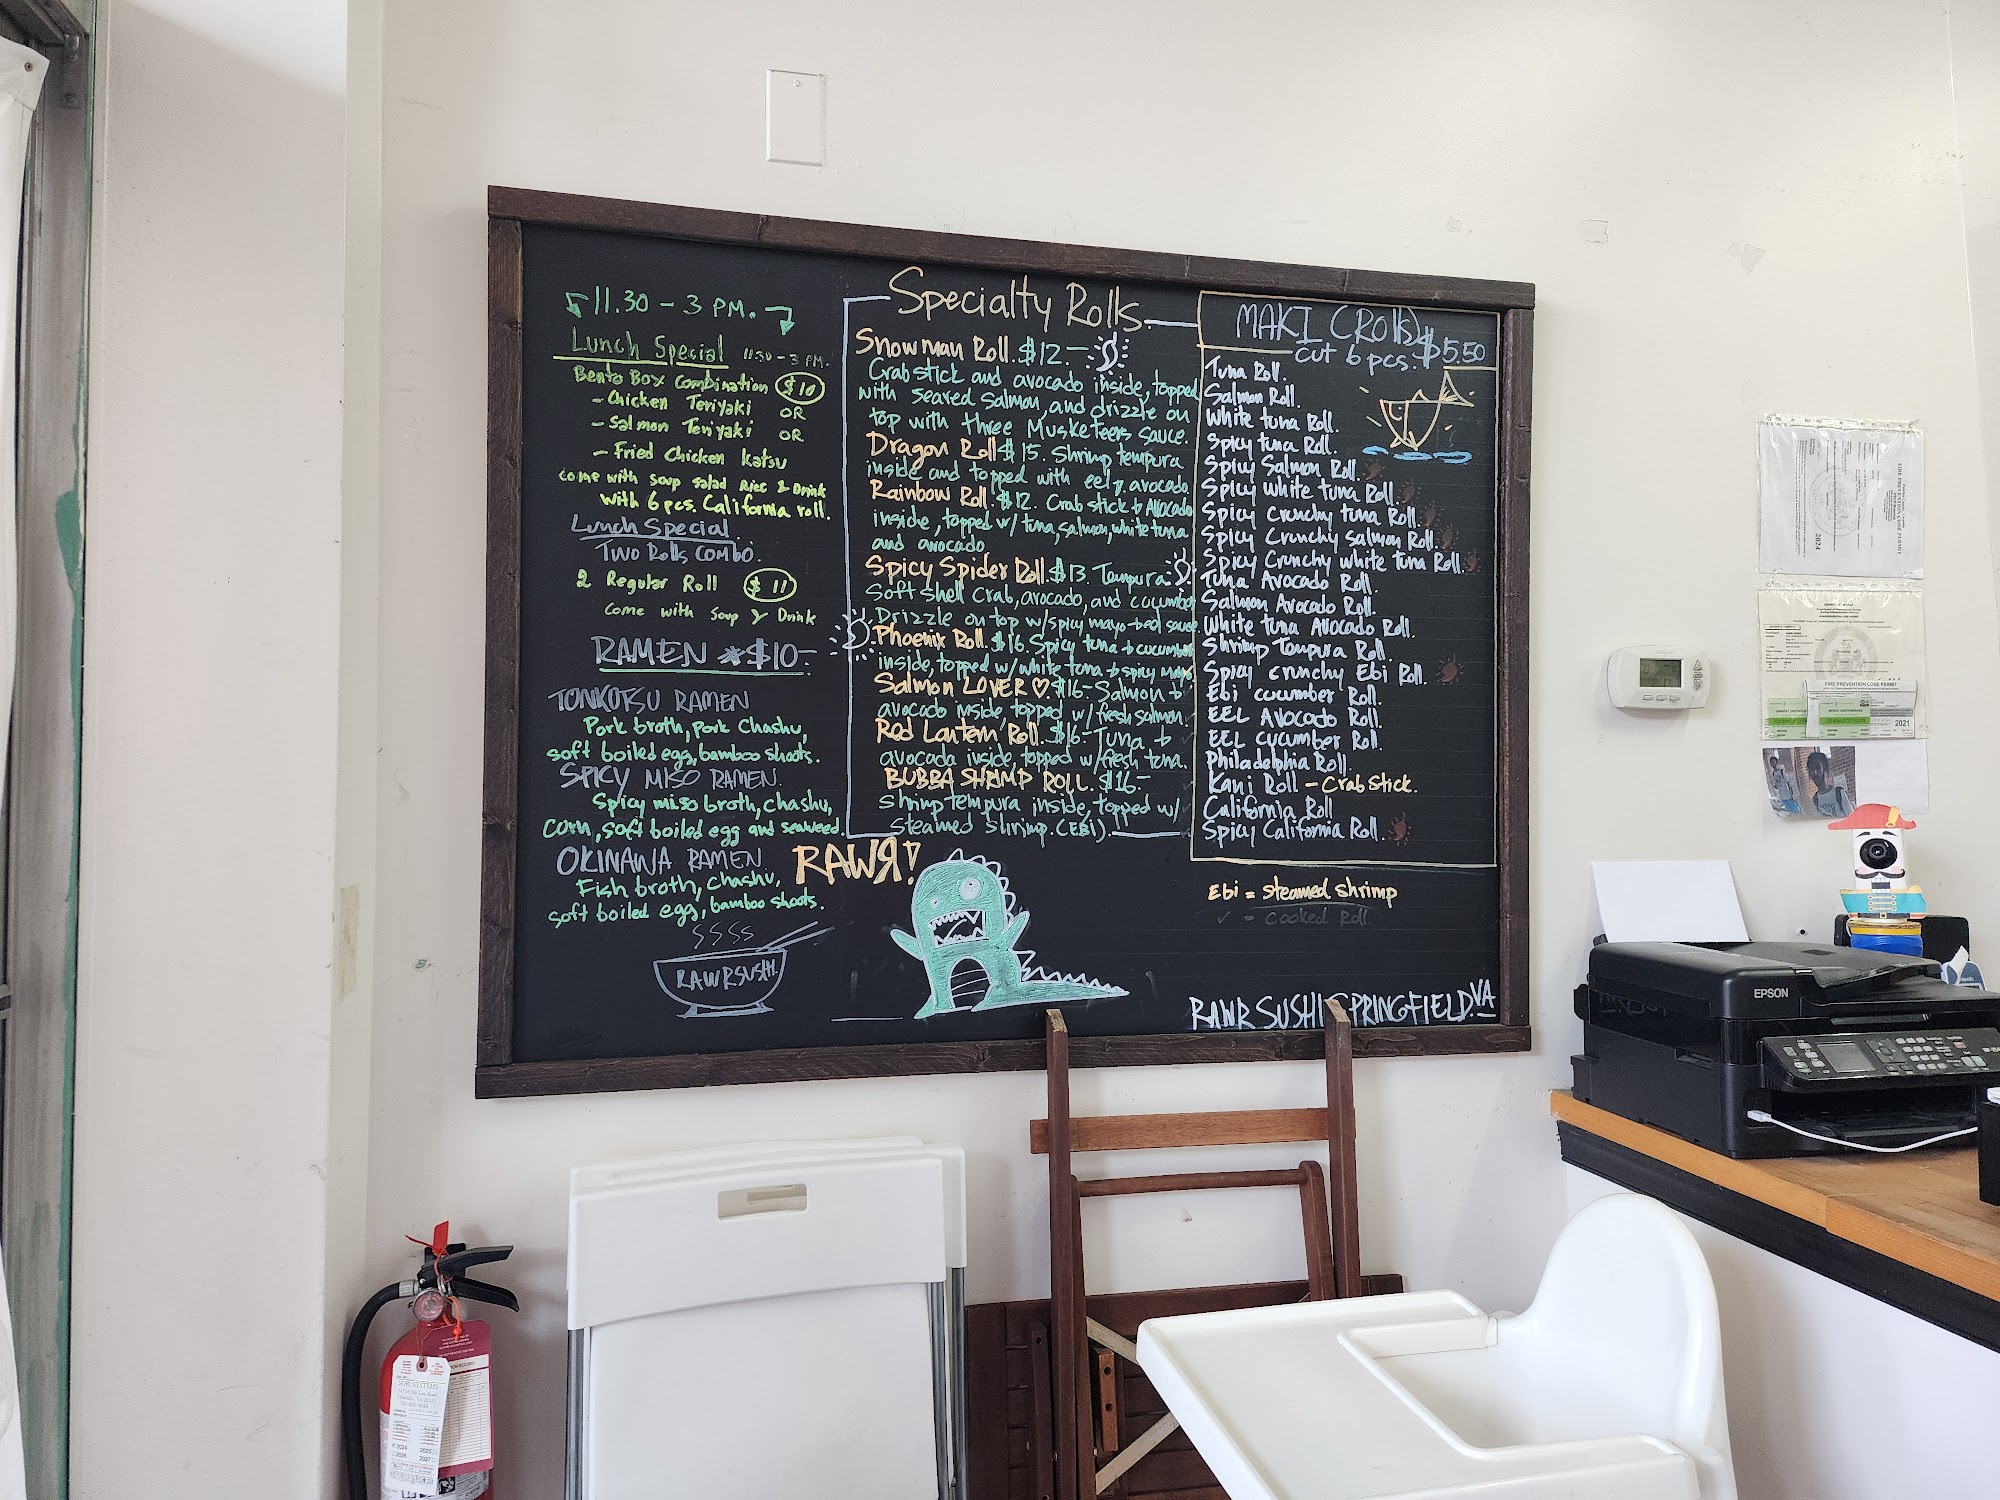 11.30 - 3 PM.
Lunch Special 11.30 - 3 PM.
Bento Box Combination $10
- Chicken Teriyaki OR
- Salmon Teriyaki OR
- Fried Chicken Katsu
come with soup salad Rice & Drink
with 6 pcs. California roll.
Lunch Special
Two Rolls Combo.
2 Regular Roll $11
come with soup & Drink
RAMEN *$10-
TONKOTSU RAMEN
Pork broth, pork Chashu,
soft boiled egg, bamboo shoots.
SPICY MISO RAMEN.
Spicy miso broth, chashu,
corn, soft boiled egg and seaweed.
OKINAWA RAMEN
Fish broth, chashu,
soft boiled egg, bamboo shoots.
RAWRSUSHI.
Specialty Rolls
Snowman Roll. $12.-
Crab stick and avocado inside, topped
with seared Salmon, and drizzle on
top with three Musketeers sauce.
Dragon Roll $15. Shrimp tempura
inside and topped with eel & avocado
Rainbow Roll. $12. Crab stick & Avocado
inside, topped w/ tuna, salmon, white tuna
and avocado
Spicy Spider Roll. $13. Tempura
Soft shell Crab, avocado, and cucumber
Drizzle on top w/ spicy mayo & eel sauce
Phoenix Roll. $16. Spicy tuna & cucumber
inside, topped w/ white tuna & spicy mayo
Salmon LOVER ♡. $16- Salmon &
avocado inside, topped w/ fresh salmon.
Red Lantern Roll. $16- Tuna &
avocado inside, topped w/ fresh tuna.
BUBBA SHRIMP ROLL. $16-
shrimp tempura inside, topped w/
steamed shrimp. (EBI).
RAWR!
MAKI (Rolls)
cut 6 pcs. $5.50
Tuna Roll.
Salmon Roll.
White tuna Roll.
Spicy tuna Roll.
Spicy Salmon Roll.
Spicy white tuna Roll.
Spicy Crunchy tuna Roll.
Spicy Crunchy salmon Roll.
Spicy Crunchy white tuna Roll.
Tuna Avocado Roll.
Salmon Avocado Roll.
White tuna Avocado Roll.
Shrimp Tempura Roll.
Spicy crunchy Ebi Roll.
Ebi cucumber Roll.
EEL Avocado Roll.
EEL cucumber Roll.
Philadelphia Roll.
Kani Roll - Crab Stick.
California Roll
Spicy California Roll.
Ebi = steamed shrimp
✓ = cooked Roll.
RAWR SUSHI SPRINGFIELD. VA
FIRE PREVENTION CODE PERMIT
2024
FIRE PREVENTION CODE PERMIT
2021
EPSON
2024 2025
2026 2027